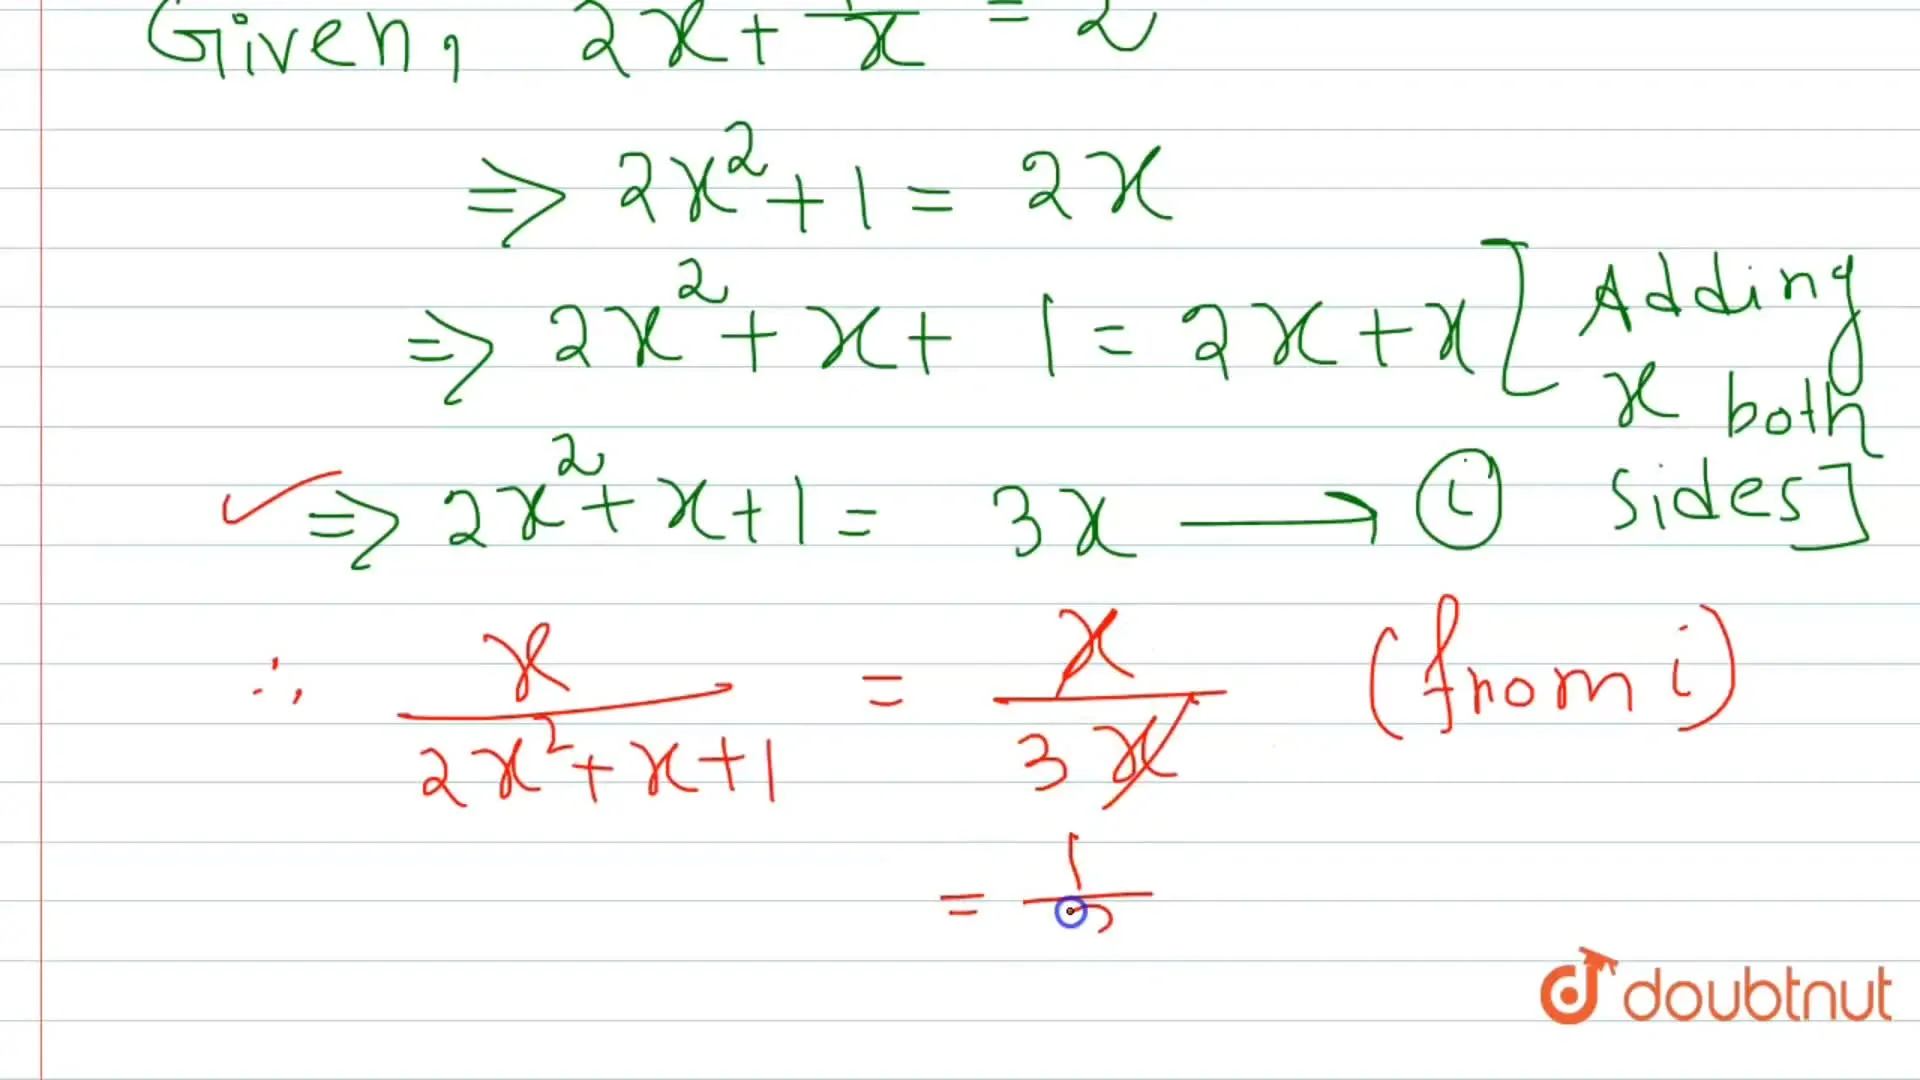 Given, 2x + 1/x = 2
⇒ 2x² + 1 = 2x
⇒ 2x² + x + 1 = 2x + x [Adding
x both
sides]
⇒ 2x² + x + 1 = 3x ⟶ (i)
∴ x/(2x² + x + 1) = x/3x (from i)
= 1/
doubtnut